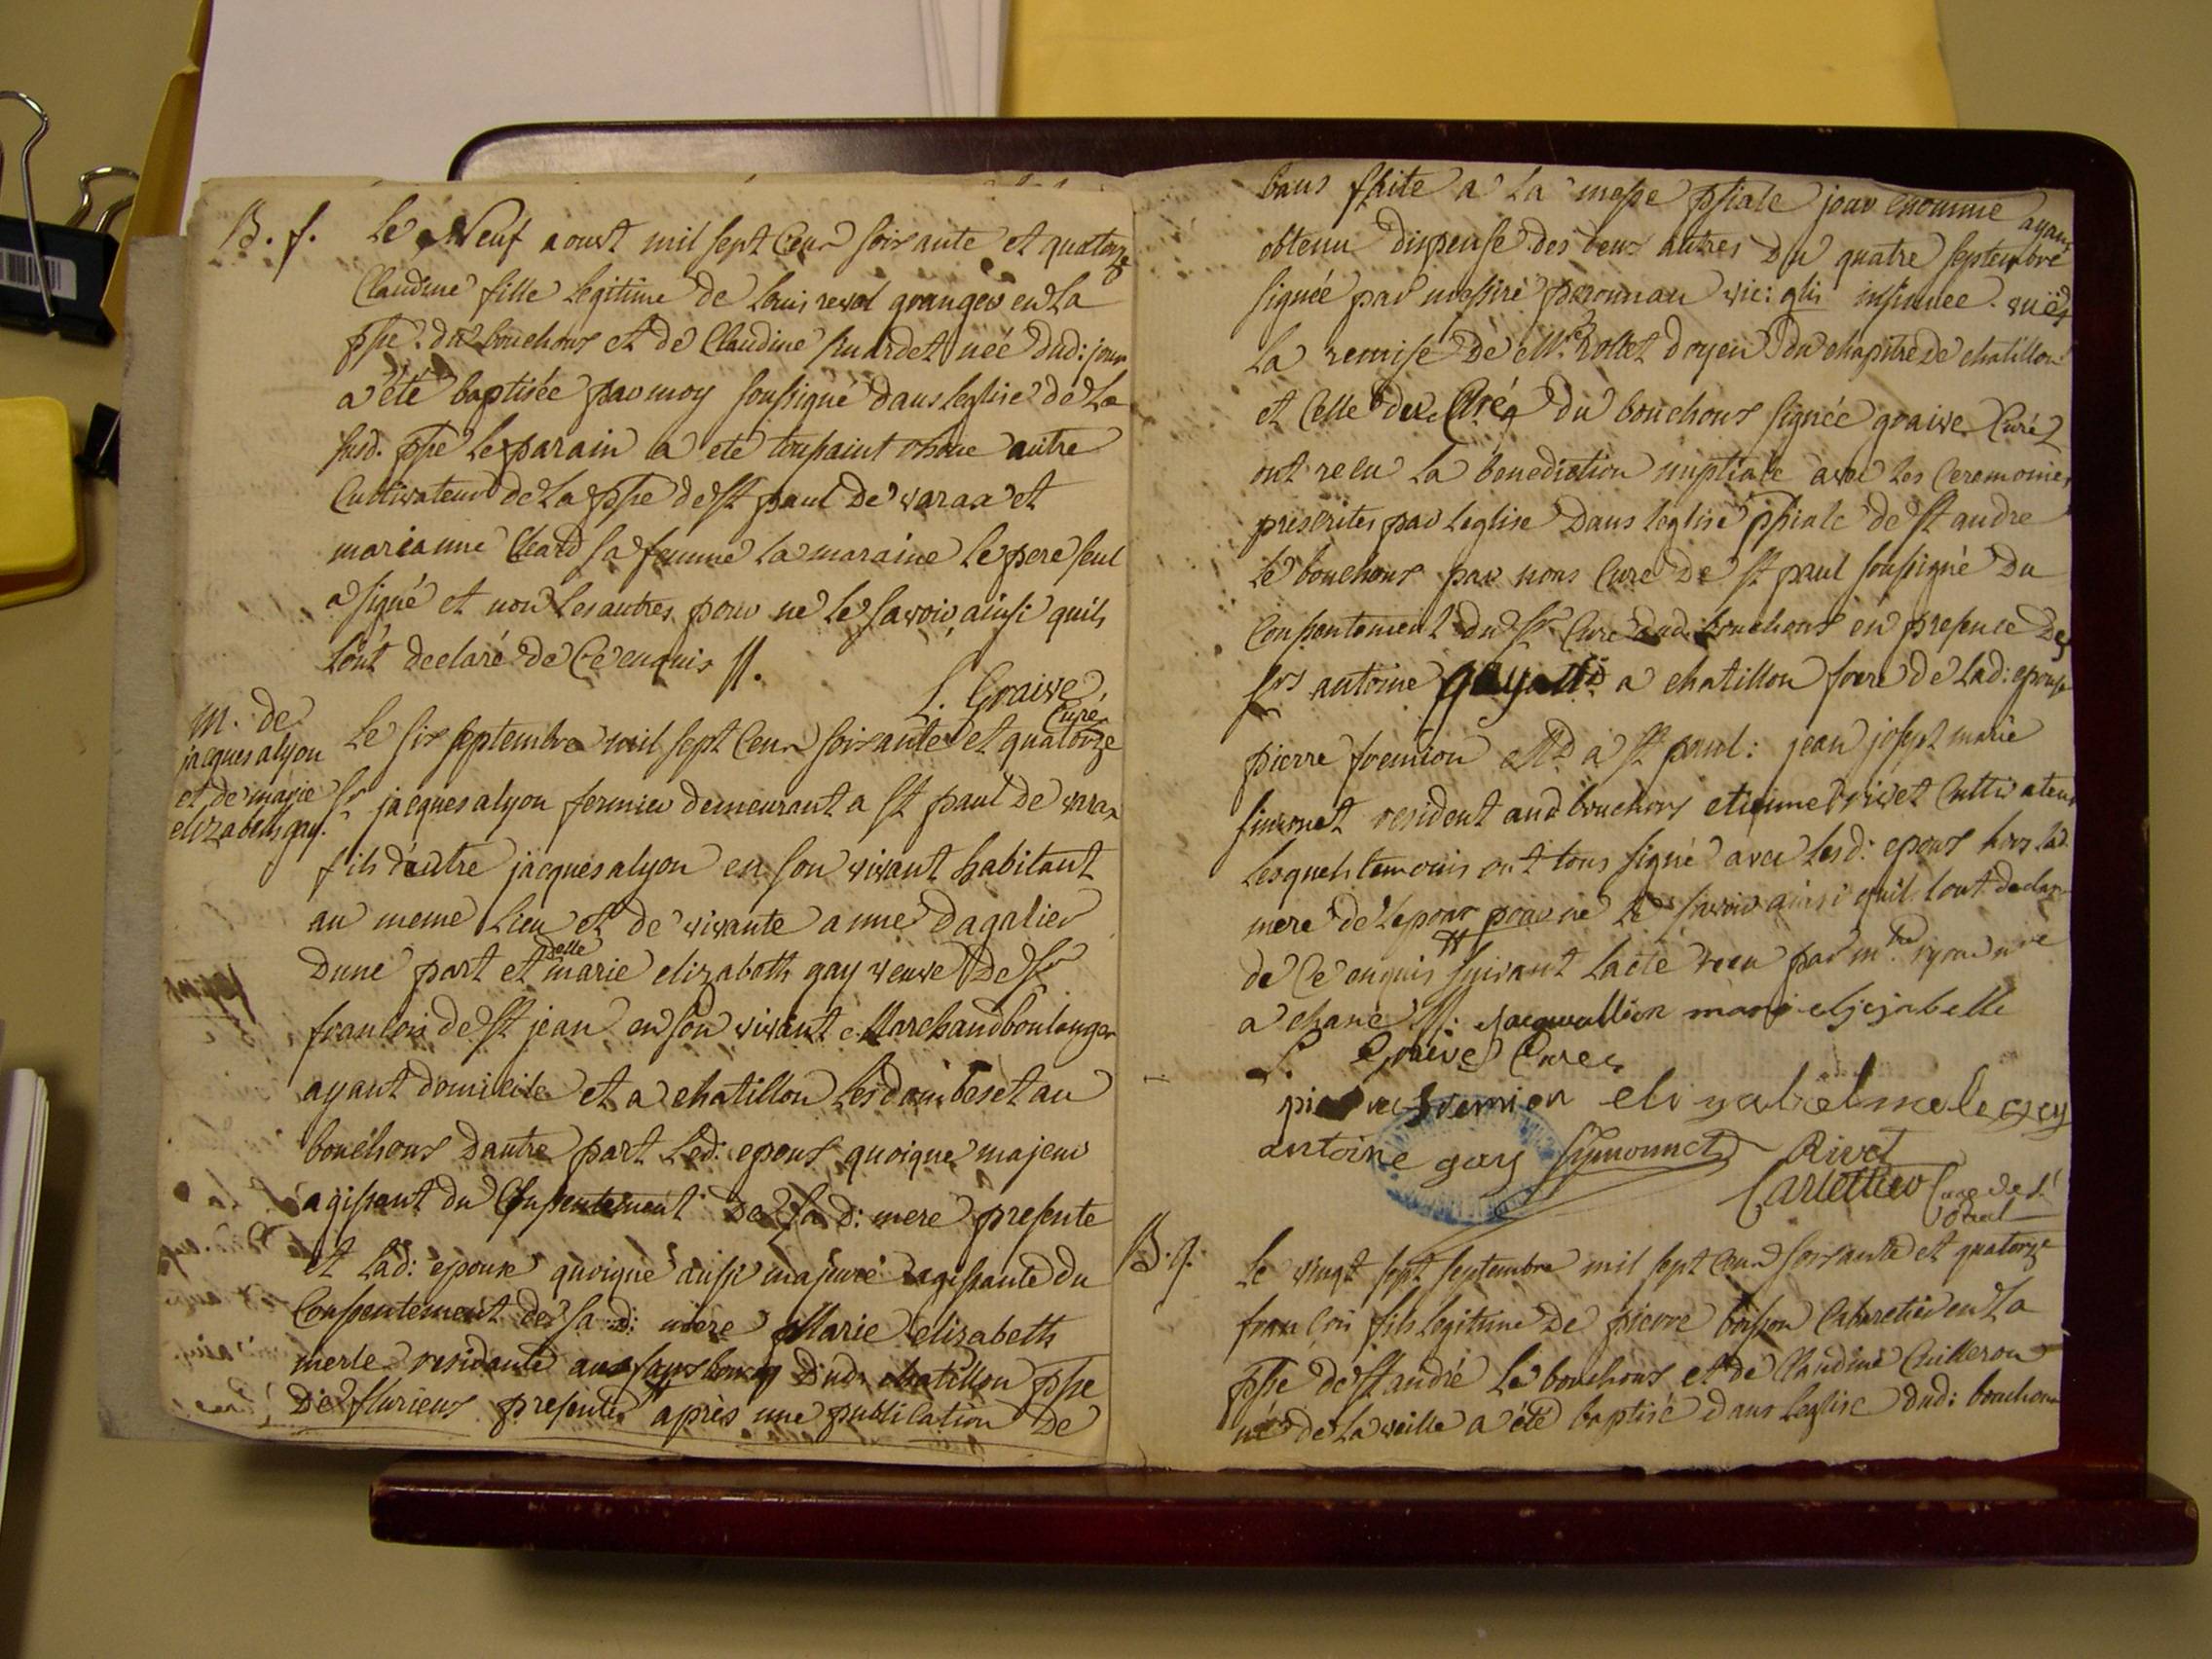 B. f. Le Neuf aoust mil sept Cent soixante et quatorze
Claudine fille Legitime de Louis revol granger en La
psse. du bouchoux et de Claudine huardet née dud: jour
a été baptisée par moy soussigné dans leglise de La
susd. psse Le parain a eté toussaint autre
Cultivateur de La psse de st paul De varax et
marianne Chard sa femme la maraine Le pere seul
a signé et non les autres pour ne le savoir ainsi quils
lont declaré de Ce enquis //.
L. Graive,
Curé
m. de
jacques alyon
et de marie
elizabeth gay.
Le six septembre mil sept Cent soixante et quatorze
Sr jacques alyon fermier demeurant a St paul de varax
fils dautre jacques alyon en son vivant habitant
au meme Lieu et de vivante anne Dagalier
Dune part et delle marie elizabeth gay veuve De Sr
francois de St jean en son vivant Marchand boulanger
ayant domicile et a chatillon Les dombes et au
bouchoux Dautre part Led: epoux quoique majeur
agissant du Consentement De Sa d: mere presente
et Lad: epouse quoique aussi majeure agissante du
Consentement de sa d: mere Marie elizabeth
merle residante au fauxbourg Dud: chatillon psse
De flurieux presente après une publication De
bans faite a La messe pssiale jour enomme ayant
obtenu dispense des deux autres Du quatre septembre
signée par messire peronnau vic: gl: insinuee. vuës
La remise De Mr. rollet doyen du chapitre de chatillon
et Celle du Curé du bouchoux signée graive Curé
ont recu La benediction nuptiale avec les Ceremonies
prescrites par leglise Dans leglise pssiale de St andre
le bouchoux par nous Curé De St paul soussigné Du
Consentement du Sr Curé dud. bouchoux en presence Des
Srs antoine gay a chatillon frere de lad: epouse
pierre fremion Md a St paul: jean josept marie
simonet resident aud bouchoux etienne rivet Cultivateur
Lesquels temoins ont tous signé avec Lesd: epoux hors lad.
mere de Lepoux pour ne le savoir ainsi quil lont declaré
de Ce enquis suivant Lacte recu par me. ryon nre
a chane //. Jacque allion mari eljsjabelle
L. Graive Curé
pierre fremion elizabet merle gay
antoine gay Symonnet Rivet
Carlettier Curé de St
paul
B. g. Le vingt sept septembre mil sept Cent soixante et quatorze
francois fils legitime De pierre boisson Cabaretier en La
psse de St andré Le bouchoux et de Claudine Cuilleron
né de La veille a été baptisé dans Leglise dud: bouchoux